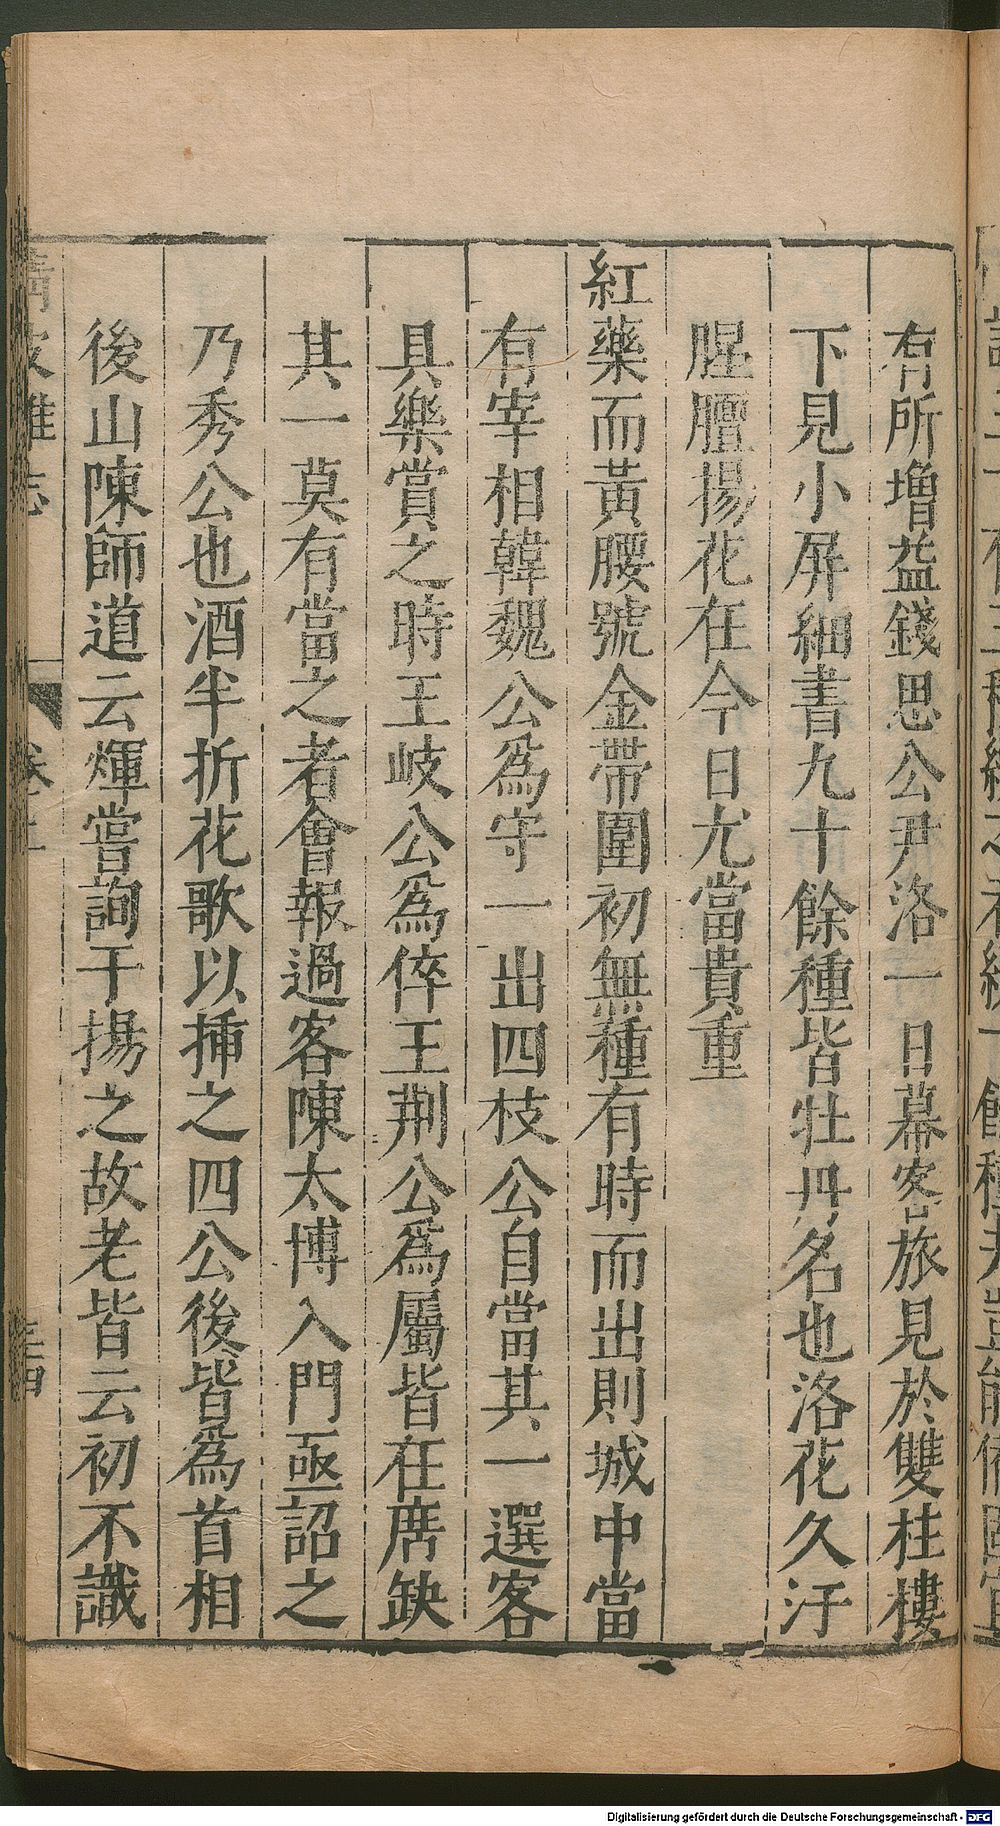 有所增益錢思公尹洛一日幕客旅見於雙桂樓
下見小屏細書九十餘種皆牡丹名也洛花久汙
腥膻揚花在今日尤當貴重
紅藥而黃腰號金帶圍初無種有時而出則城中當
有宰相韓魏公為守一出四枝公自當其一選客
具樂賞之時王岐公為倅王荆公為屬皆在席缺
其一莫有當之者會報過客陳太博入門亟詔之
乃秀公也酒半折花歌以揷之四公後皆為首相
後山陳師道云煇嘗詢于揚之故老皆云初不識
清波雜志
卷
三四
Digitalisierung gefördert durch die Deutsche Forschungsgemeinschaft - DFG